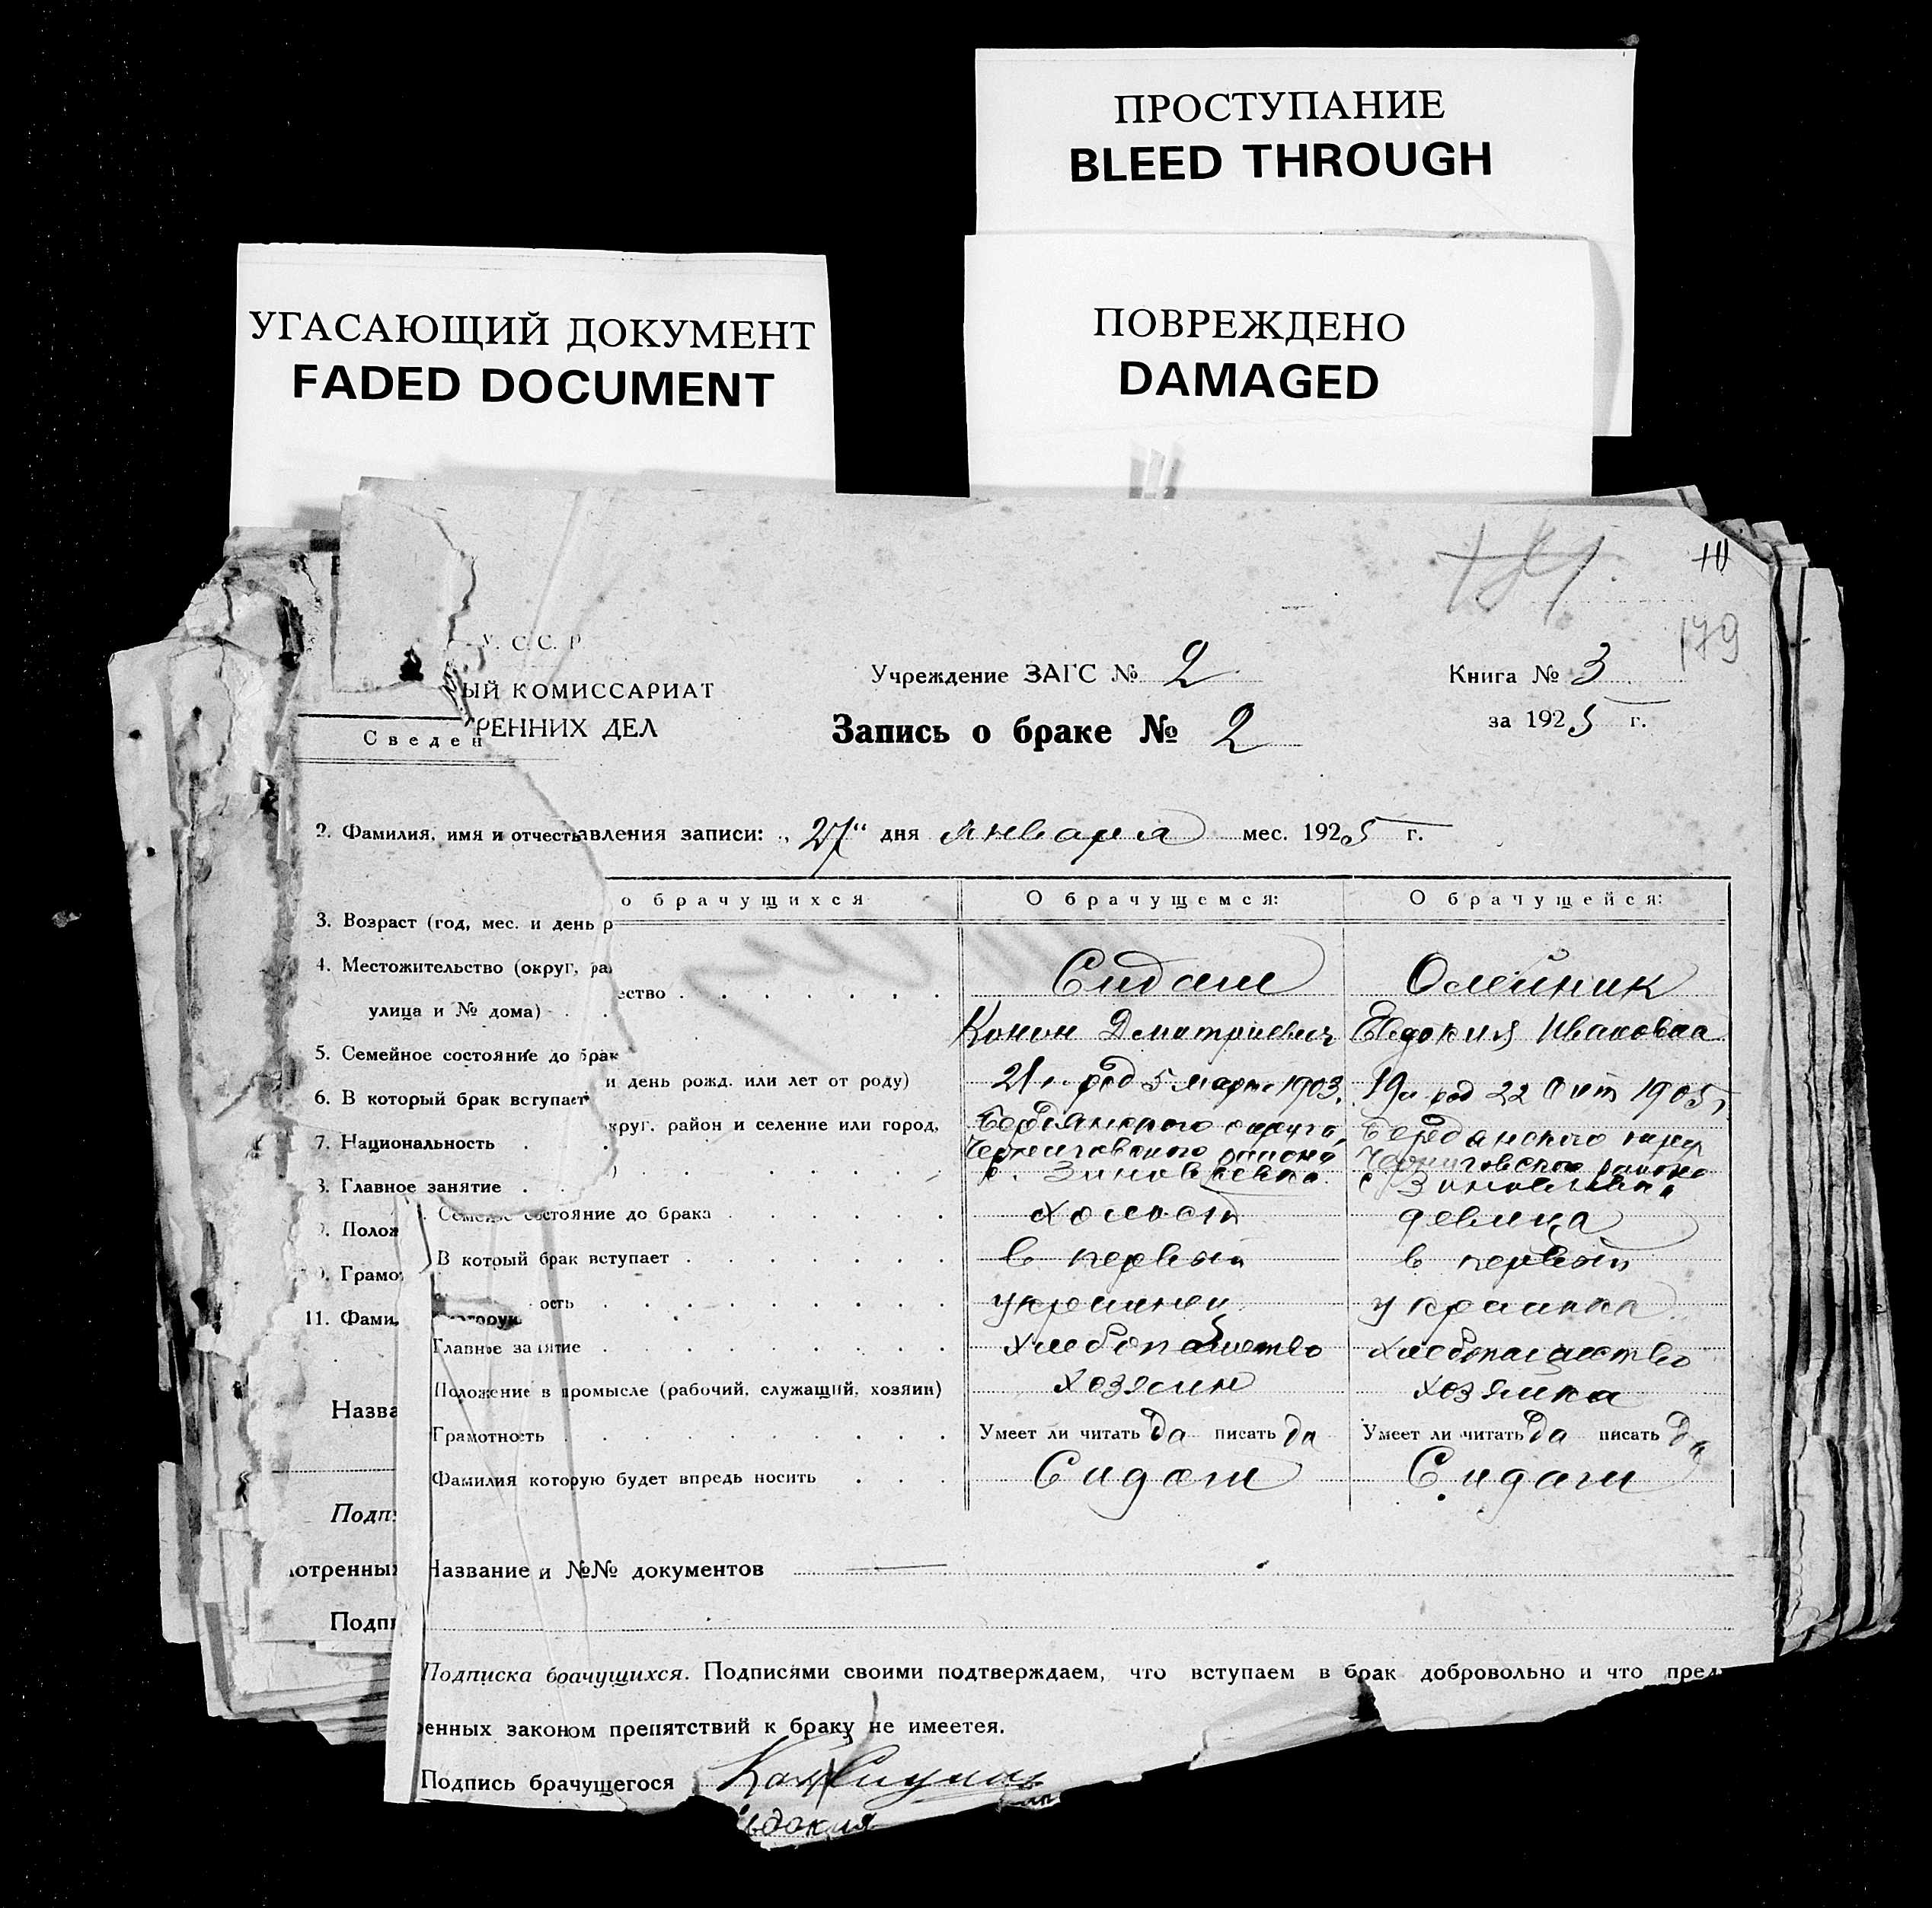 ПРОСТУПАНИЕ
BLEED THROUGH
УГАСАЮЩИЙ ДОКУМЕНТ
FADED DOCUMENT
ПОВРЕЖДЕНО
DAMAGED
179
У. С. С. Р
ЫЙ КОМИССАРИАТ
РЕННИХ ДЕЛ
Учреждение ЗАГС № 2
Книга № 3
за 1925 г.
Запись о браке № 2
Сведен
2. Фамилия, имя и отчеств
авления записи: „27" дня января мес. 1925 г.
о брачущихся О брачущемся: О брачущейся:
3. Возраст (год, мес. и день р
4. Местожительство (округ, ра
улица и № дома)
5. Семейное состояние до брак
6. В который брак вступает
7. Национальность
8. Главное занятие
9. Полож
Грамо
11. Фами
Назва
Подп
отренных
Подпи
ество Сидаш Олейник
Конон Дмитриевич Евдокия Ивановна
и день рожд. или лет от роду) 21 г. род 5 марта 1903. 19 л род 22 Окт 1905 г
круг, район и селение или город, Бердянского округа, Бердянского округ
Черниговского района Черниговского района
с. Зиновьевка с Зиновьевка
Семейное состояние до брака холост девица
В котоый брак вступает в первый в первый
ость украинец украинка
Главное занятие хлебопашество хлебопашество
Положение в промысле (рабочий, служащий, хозяин) хозяин хозяйка
Грамотность Умеет ли читать да писать да Умеет ли читать да писать да
Фамилия которую будет впредь носить Сидаш Сидаш
Название и №№ документов
Подписка брачущихся. Подписями своими подтверждаем, что вступаем в брак добровольно и что пред
енных законом препятствий к браку не имеетея.
Подпись брачущегося
вдокия